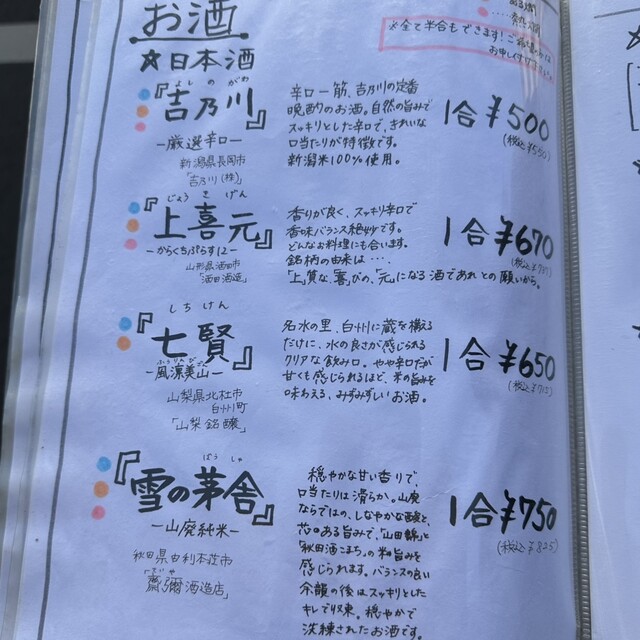 お酒
☆日本酒
※全て半合もできます!
よしのがわ
『吉乃川』
―厳選辛口―
新潟県長岡市
「吉乃川(株)」
辛口一筋、吉乃川の定番
晩酌のお酒。自然の旨みで
スッキリとした辛口で、きれいな
口当たりが特徴です。
新潟米100%使用。
1合¥500
(税込¥550)
じょうきげん
『上喜元』
―からくちぷらす12―
山形県酒田市
「酒田酒造」
香りが良く、スッキリ辛口で
香味バランス絶妙です。
どんなお料理にも合います。
銘柄の由来は…
「上」質な、「喜」びの、「元」になる酒であれとの願いから。
1合¥670
(税込¥737)
しちけん
『七賢』
―風凛美山―
山梨県北杜市
白州町
「山梨銘醸」
名水の里、白州に蔵を構える
だけに、水の良さが感じられる
クリアな飲み口。やや辛口だが
甘くも感じられるほど、米の旨みを
味わえ、みずみずしいお酒。
1合¥650
(税込¥715)
ぼうしゃ
『雪の茅舎』
―山廃純米―
秋田県由利本荘市
「齋彌酒造店」
穏やかな甘い香りで、
口当たりは滑らか。山廃
ならではの、しなやかな酸と、
芯ある旨みで、「山田錦」と
「秋田酒こまち」の米の旨みを
感じられます。バランスの良い
余韻の後はスッキリとした
キレで収束。穏やかで
洗練されたお酒です。
1合¥750
(税込¥825)